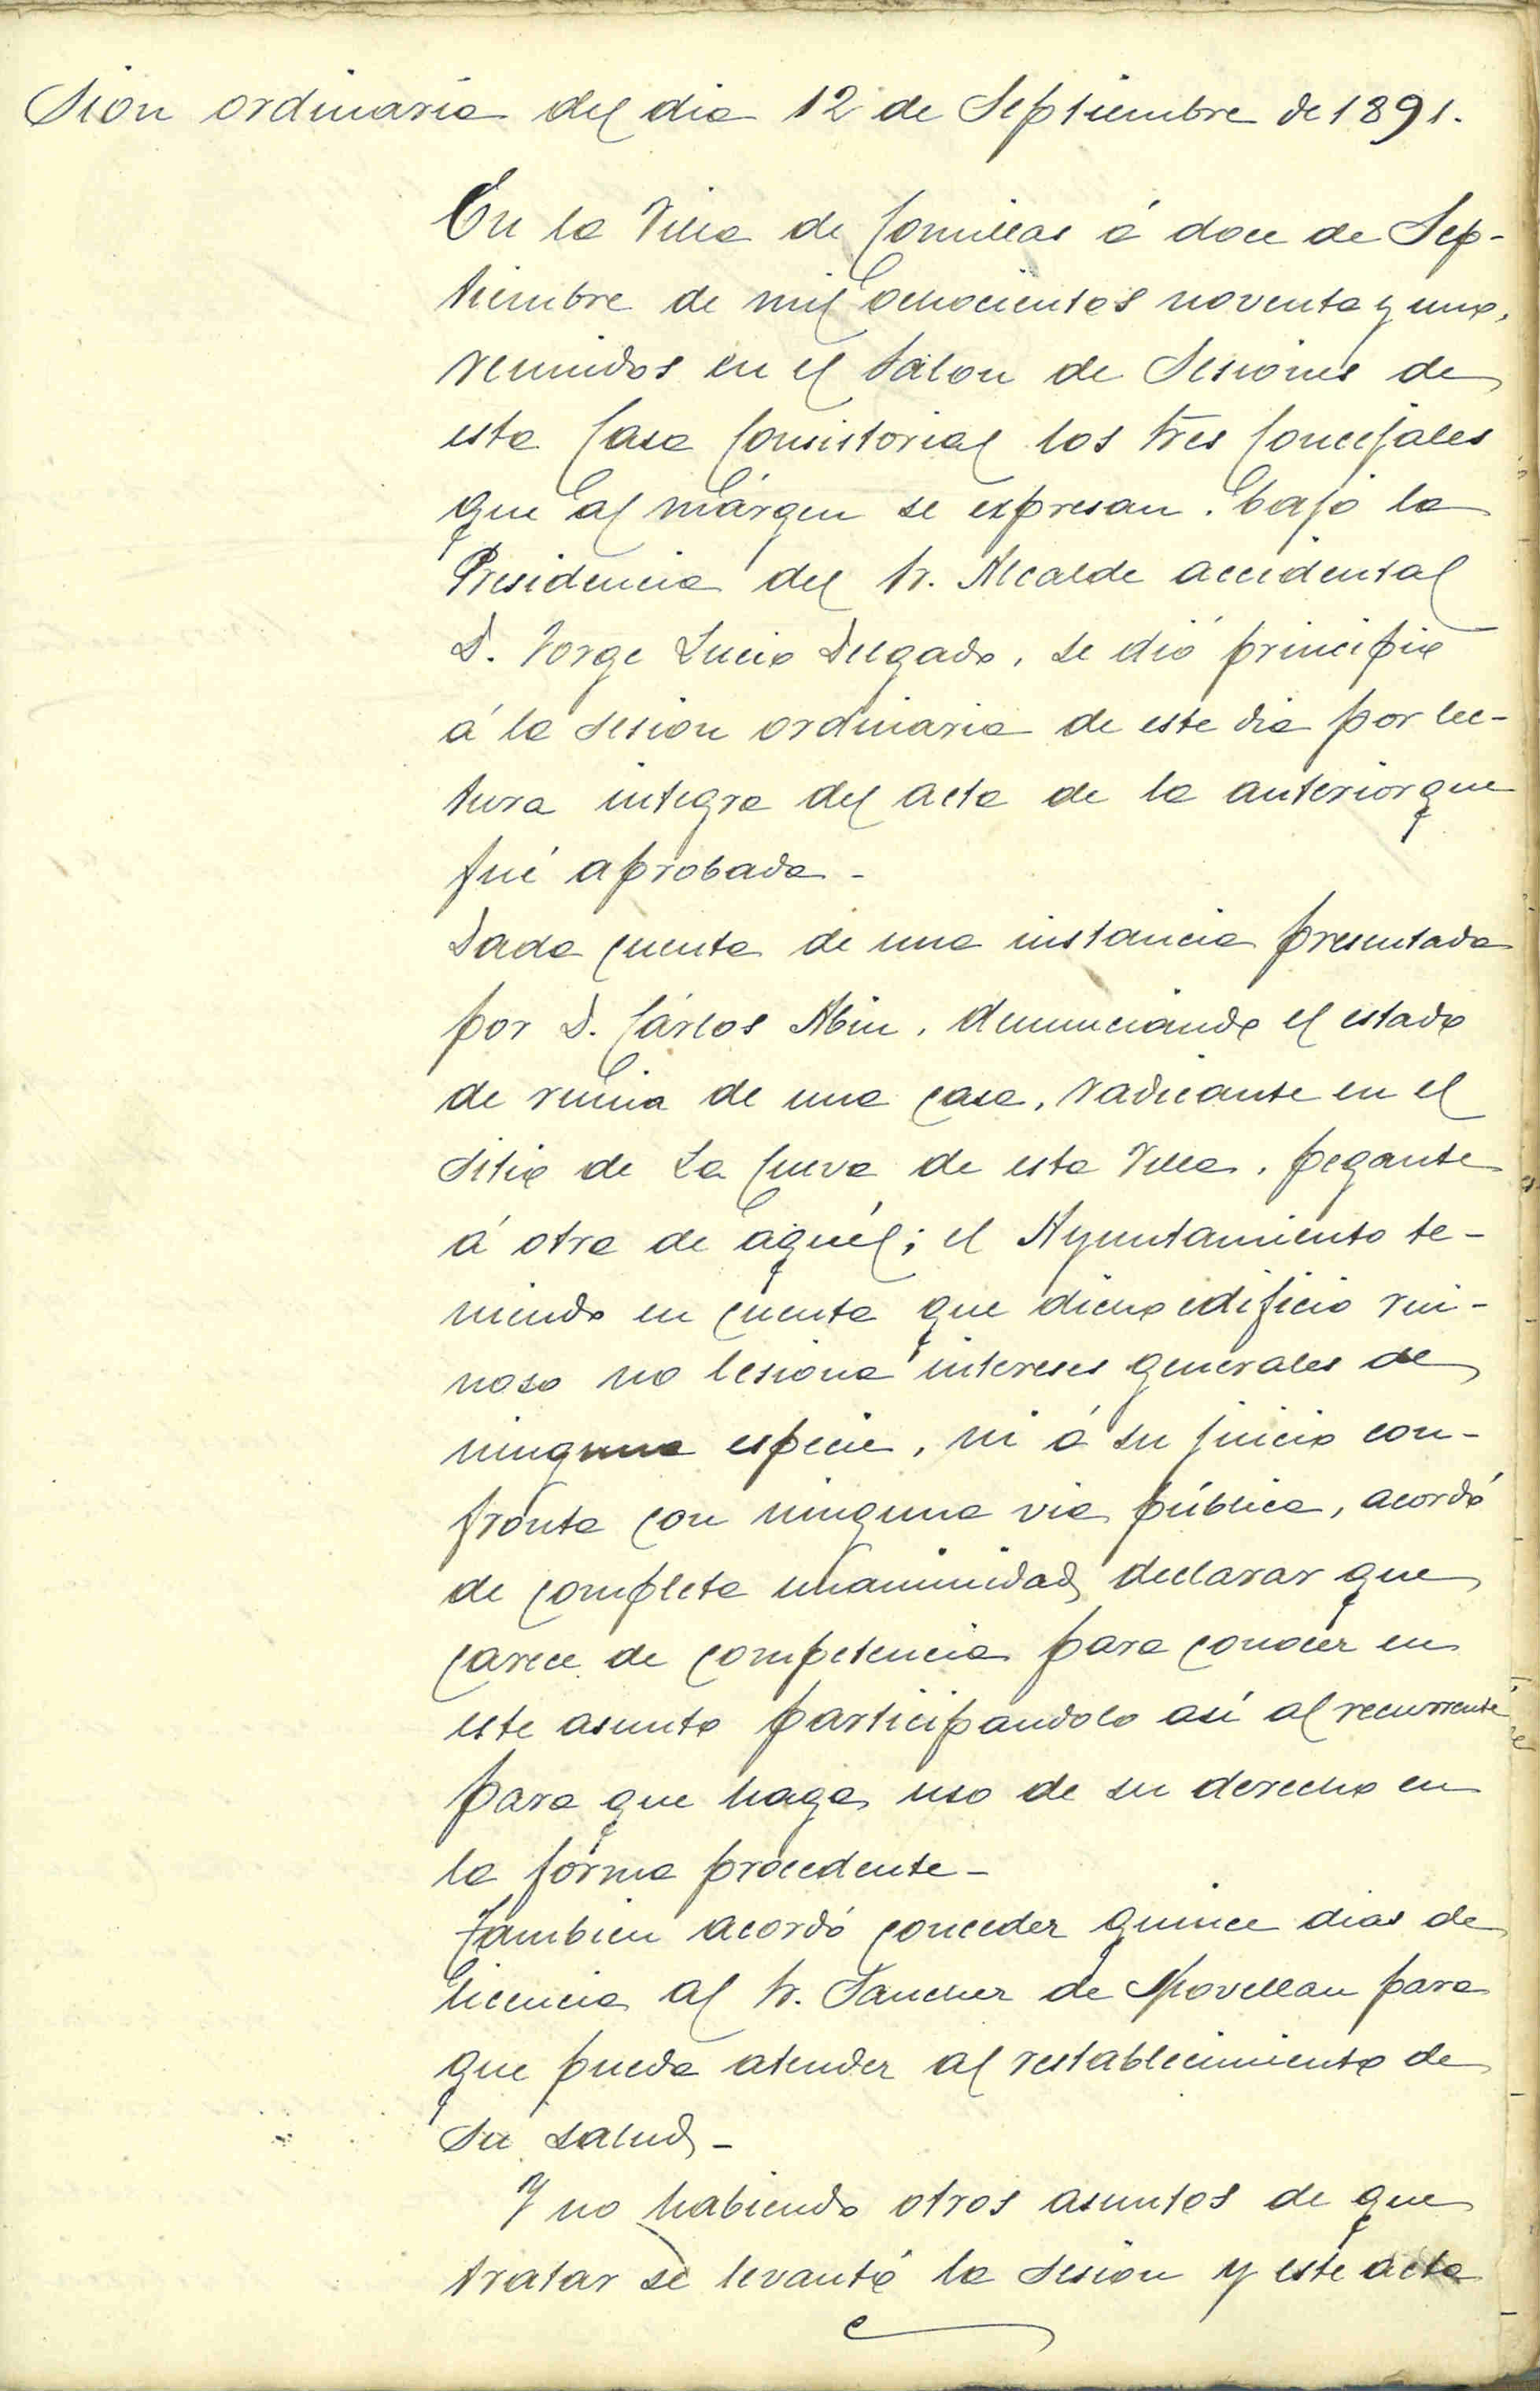 sion ordinaria del dia 12 de Septiembre de 1891.
En la Villa de Comillas á doce de Sep-
tiembre de mil ochocientos noventa y uno,
reunidos en el Salon de Sesiones de
esta Casa Consistorial los tres Concejales
que al márgen se expresan. bajo la
Presidencia del Sr. Alcalde accidental
D. Jorge Lucio Delgado, se dió principio
á la sesion ordinaria de este dia por lec-
tura integra del acta de la anterior que
fué aprobada -
Dada cuenta de una instancia presentada
por D. Cárlos Abin, denunciando el estado
de ruina de una casa, radicante en el
sitio de La Cueva de esta Villa, pegante
á otra de aquél; el Ayuntamiento te-
niendo en cuenta que dicho edificio rui-
noso no lesiona intereses generales de
ninguna especie, ni á su juicio con-
fronta con ninguna via pública, acordó
de completa unanimidad declarar que
carece de competencia para conocer en
este asunto participandolo asi al recurrente
para que haga uso de su derecho en
la forma procedente -
Tambien acordó conceder quince dias de
licencia al Sr. Sanchez de Movellan para
que pueda atender al restablecimiento de
su salud -
Y no habiendo otros asuntos de que
tratar se levantó la sesion y este acta